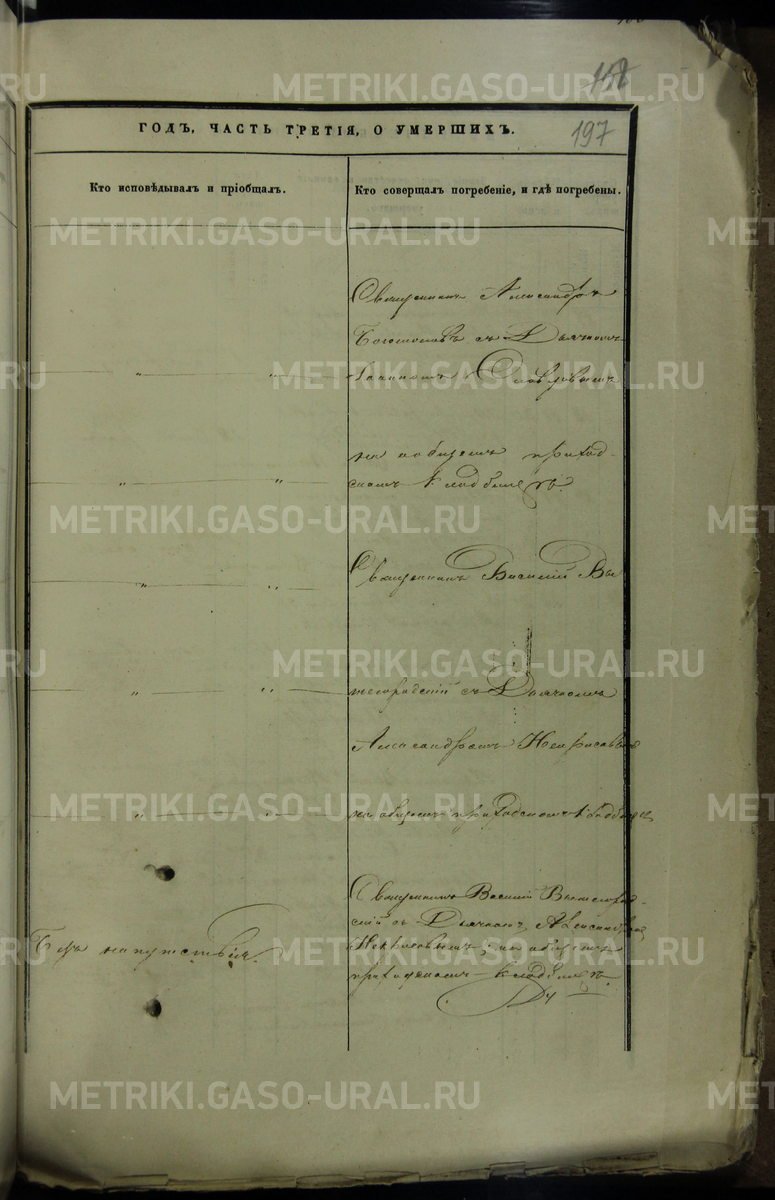 158
197
ГОДЪ, ЧАСТЬ ТРЕТІЯ, О УМЕРШИХЪ.
Кто исповѣдывалъ и пріобщалъ.
Кто совершалъ погребеніе, и гдѣ погребены.
Священникъ Александръ
съ Дьячкомъ
на общемъ приход-
скомъ кладбищѣ.
Священникъ Василій Вы
шегородскій съ Дьячкомъ
Александромъ Некрасовымъ
на общемъ приходскомъ кладбищ
Священникъ Василій Вышегород-
скій съ Дьячкомъ Александромъ
Некрасовымъ; на общемъ
приходскомъ кладбищѣ.
Безъ напутствія.
METRIKI.GASO-URAL.RU